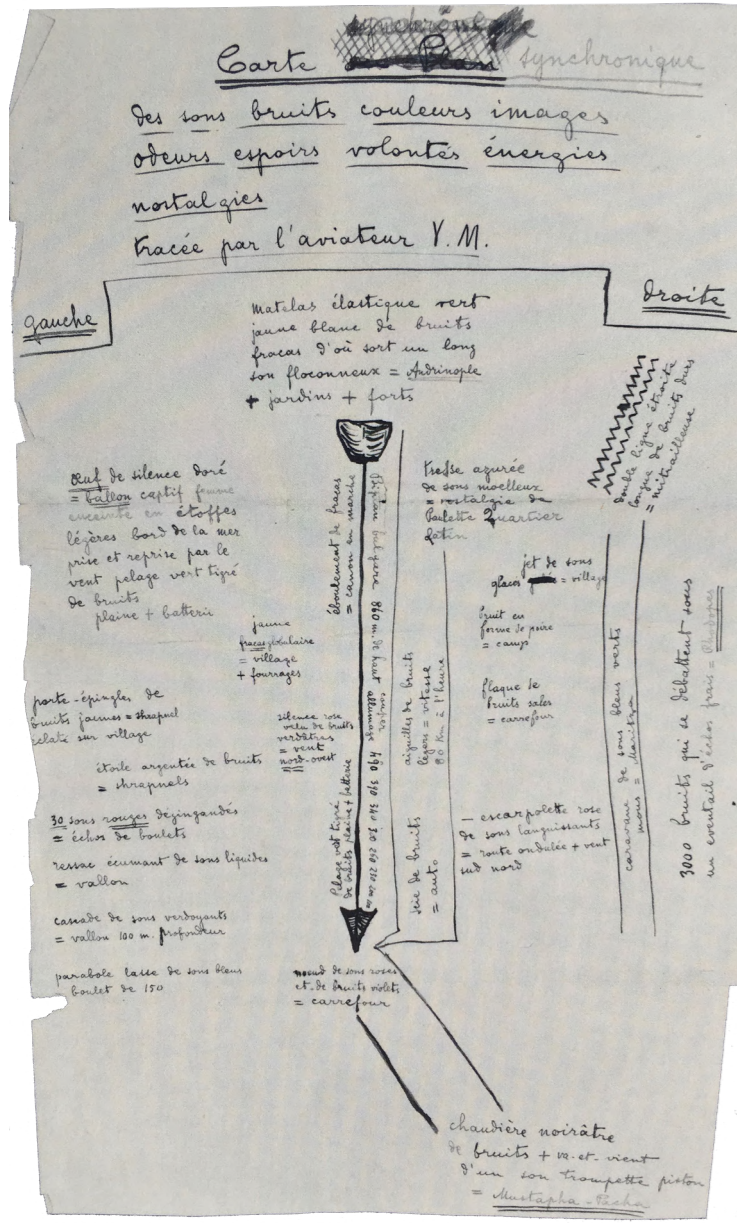 synchrône
Carte Plan synchronique
des sons bruits couleurs images
odeurs espoirs volontés énergies
nostalgies
tracée par l'aviateur Y.M.
gauche
droite
matelas élastique vert
jaune blanc de bruits
fracas d'où sort un long
son floconneux = Andrinople
+ jardins + forts
œuf de silence doré
= ballon captif femme
enceinte en étoffes
légères bord de la mer
prise et reprise par le
vent pelage vert tigré
de bruits
plaine + batterie
jaune
fracas globulaire
= village
+ fourrages
porte-épingles de
bruits jaunes = shrapnel
éclaté sur village
silence rose
velu de bruits
verdâtres
= vent
nord-ovest
étoile argentée de bruits
= shrapnels
30 sons rouges dézingandés
= échos de boulets
ressac écumant de sons liquides
= vallon
cascade de sons verdoyants
= vallon 100 m. profondeur
parabole lasse de sons bleus
boulet de 150
éboulement de fracas
= canon en marche
Pelage vert tigré
de bruits plaine + batterie
Biplan bulgare 860 m. de haut couper
allumage 490 390 340 310 260 230
aiguilles de bruits
légers = vitesse
80 Km à l'heure
scie de bruits
= auto
tresse azurée
de sons moelleux
= nostalgie de
Paulette Quartier
Latin
jet de sons
glacés = village
bruit en
forme de poire
= camps
flaque de
bruits sales
= carrefour
– escarpolette rose
de sons languissants
= route ondulée + vent
sud nord
double ligne étroite
longue de bruits durs
= mitrailleuse
caravane de sons bleus verts
mous = Maritza
3000 bruits qui se débattent sous
un eventail d'échos frais = Rhodopes
noeud de sons roses
et de bruits violets
= carrefour
chaudière noirâtre
de bruits + va-et-vient
d'un son trompette piston
= Mustapha-Pacha